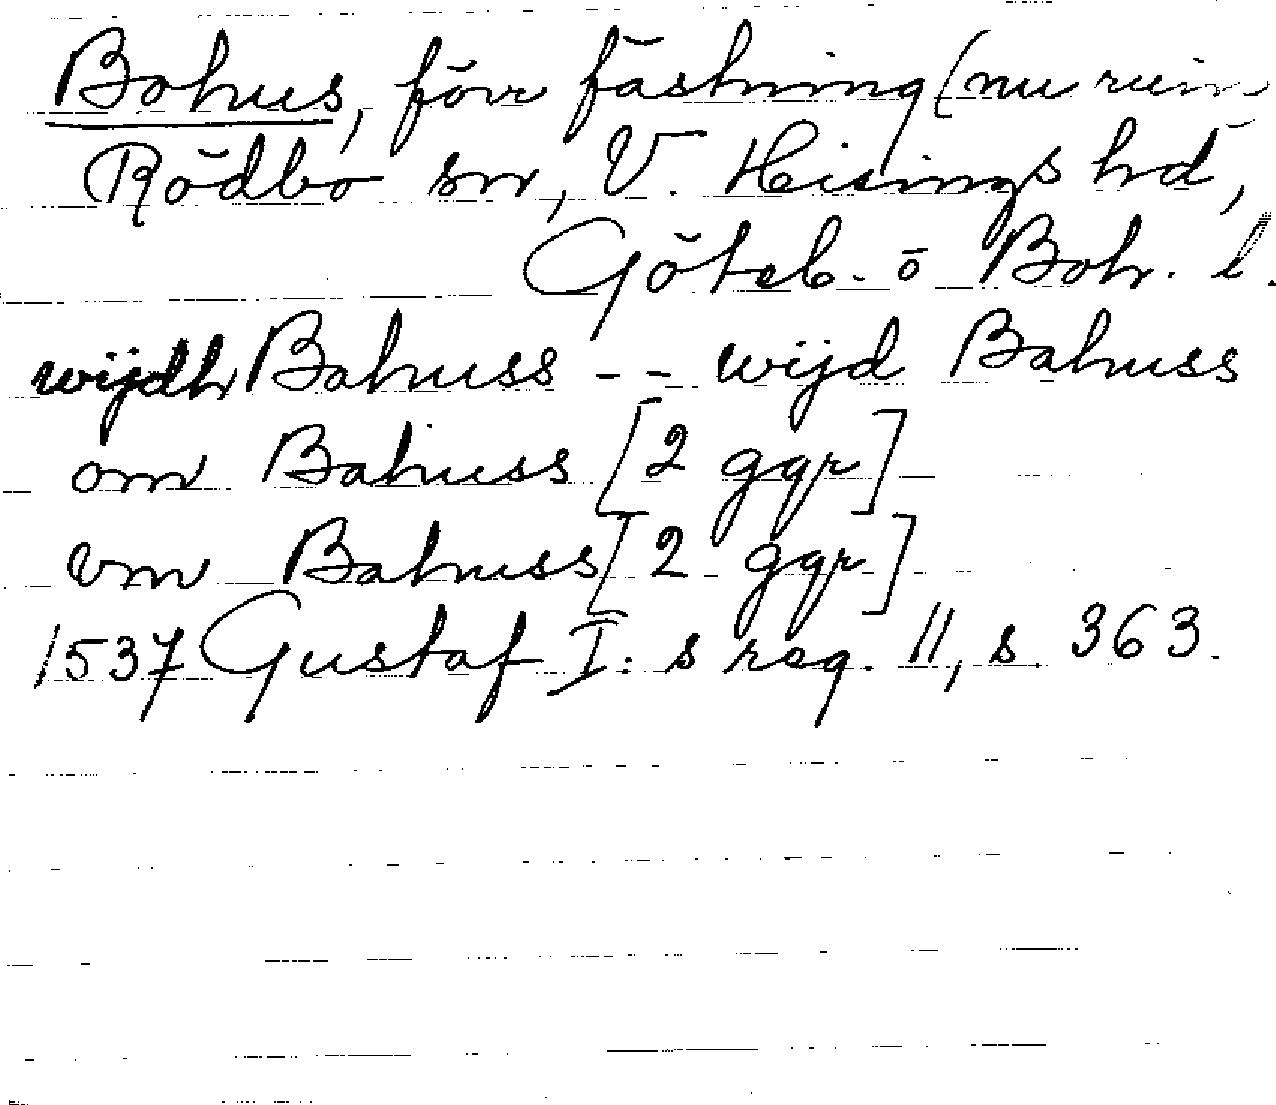 Bohus, förr fästning (nu ruin
Rödbo sn, V. Hisings hd,
Göteb. o Boh. l.
wijdh Bahuss -- wijd Bahuss
om Bahuss [2 ggr]
vm Bahuss [2 ggr]
1537 Gustaf I:s reg. 11, s 363.